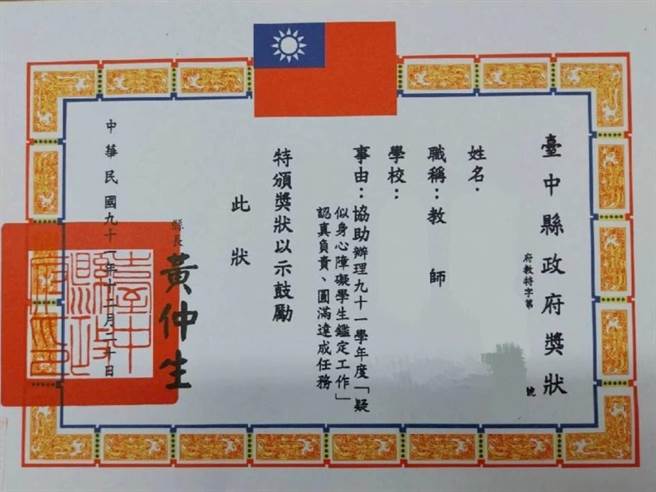 臺中縣政府獎狀
府教特字第 號
姓名：
職稱：教 師
學校：
事由：協助辦理九十一學年度「疑
似身心障礙學生鑑定工作」
認真負責、圓滿達成任務
特頒獎狀以示鼓勵
此狀
縣長 黃仲生
中華民國九十